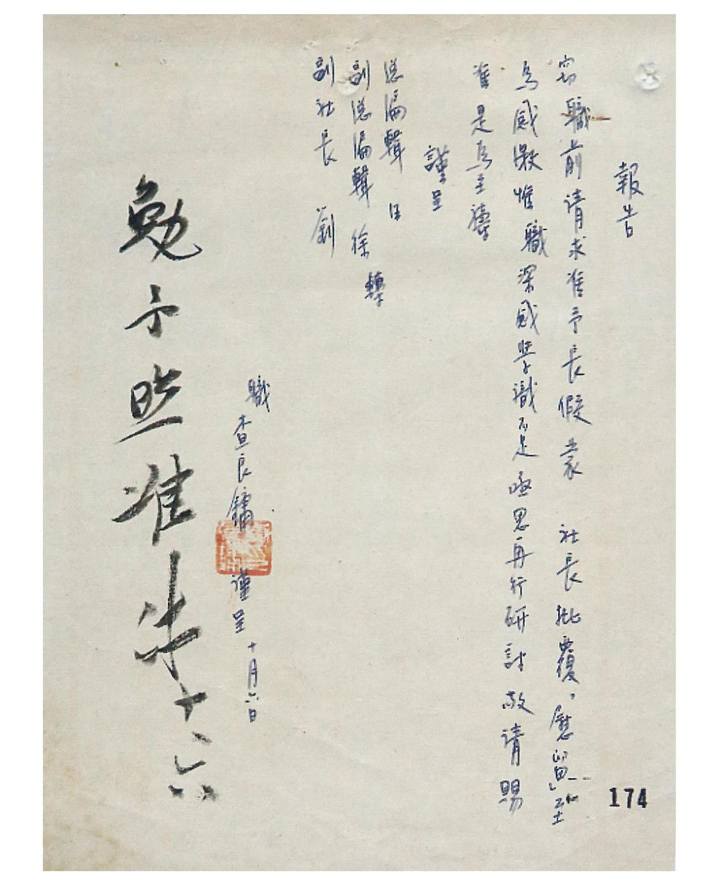 報告
竊職前請求准予長假蒙 社長批覆，「慰留」至
為感激惟職深感學識不足亟思再行研討敬請賜
准是為至禱
謹呈
總編輯
副總編輯 徐 轉
副社長 劉
職 查良鏞 謹呈 十月六日
勉予照准 朱 十、六
174